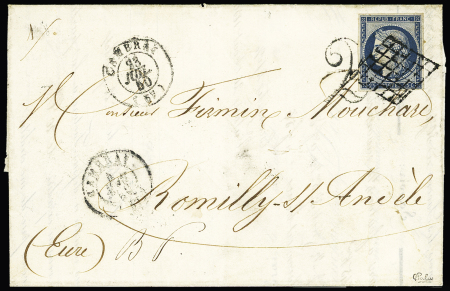 REPUB. FRANC.
CAMBRAI
23
JUIL.
50
Monsieur Firmin Mouchard
CAMBRAI
Romilly-s/ Andèle
(Eure) B P